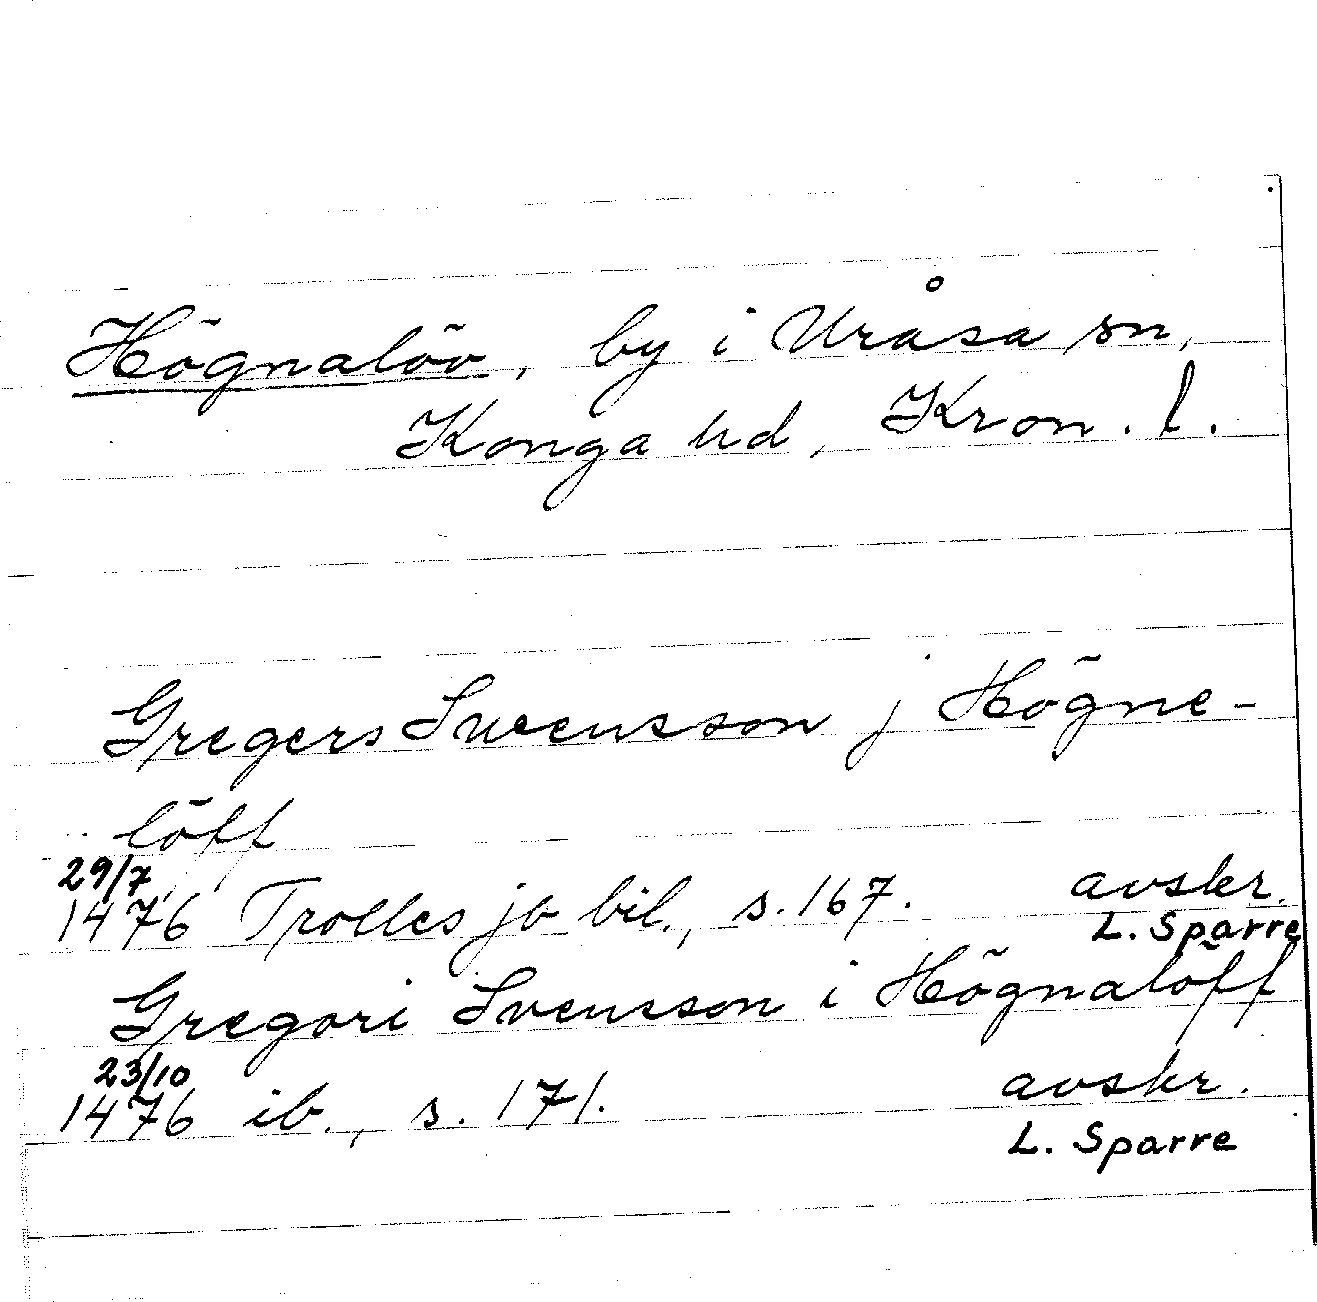 Högnalöv, by i Uråsa sn,
Konga hd, Kron. l.
Gregers Swensson j Högne-
löff
29/7
1476 Trolles jb bil., s. 167. avskr.
L. Sparre
Gregori Svensson i Högnalöff
23/10
1476 ib., s. 171. avskr.
L. Sparre